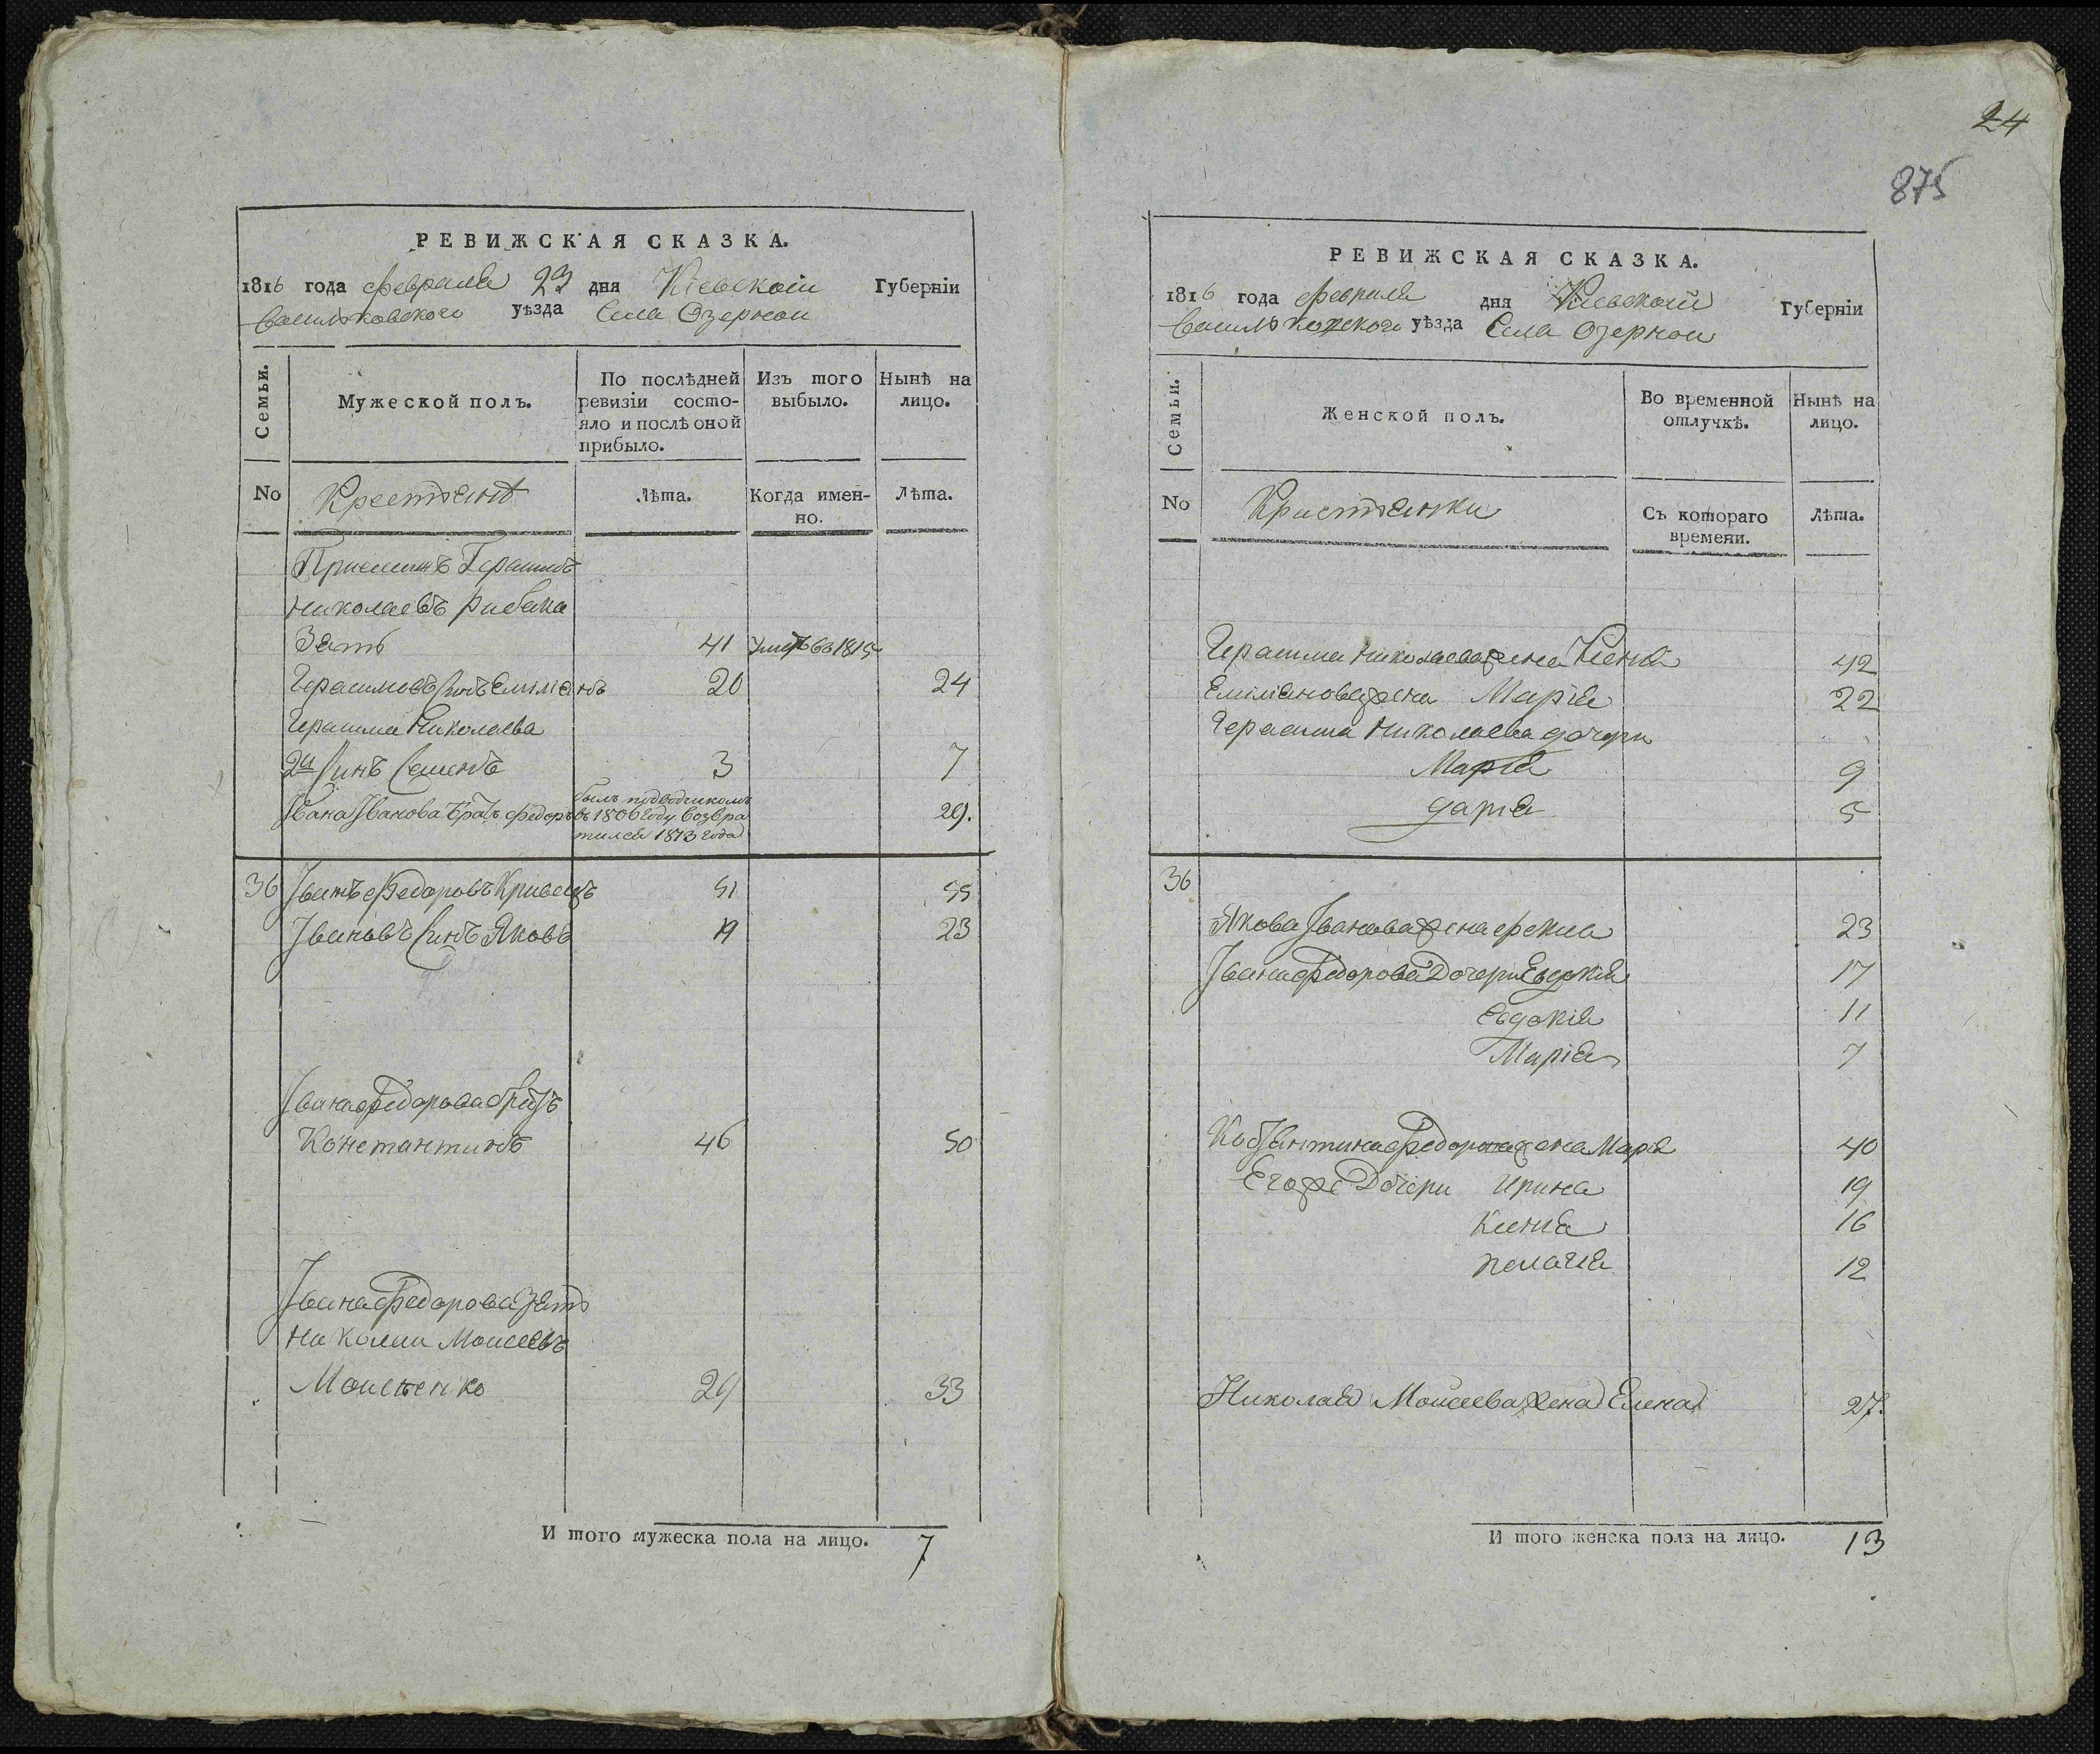 РЕВИЖСКАЯ СКАЗКА.
1816 года февраля 23 дня Кіевской Губерніи
Васильковского уѣзда Села Озерной
Семьи.
Мужеской полъ.
По послѣдней ревизіи состо-
яло и послѣ оной
прибыло.
Изъ того
выбыло.
Нынѣ на
лицо.
No
Крестьянѣ
Лѣта.
Когда имен-
но.
Лѣта.
Герасимъ
Николаевъ Рибака
Зять 41 умеръ въ 1815
Герасимовъ синъ Емиліянъ 20 24
Герасима Николаева
2й синъ Семенъ 3 7
Івана Іванова братъ федоръ былъ подводчикомъ
въ 1806 году возвра
тился 1813 года 29.
36 Іванъ Федоровъ Кривецъ 51 55
Івановъ синъ Яковъ 19 23
Івана Федорова братъ
Константинъ 46 50
Івана Федорова зять
Николай Моисеевъ
Моисѣенко 29 33
И того мужеска пола на лицо. 7
24
875
РЕВИЖСКАЯ СКАЗКА.
1816 года февраля дня Кіевской Губерніи
Васильковского уѣзда Села Озерной
Семьи.
Женской полъ.
Во временной
отлучкѣ.
Нынѣ на
лицо.
No
Кристьянки
Съ котораго
времени.
Лѣта.
Герасима Николаева жена Ксенія 42
Емиліянова жена Марія 22
Герасима Николаева дочери
Марія 9
дарія 5
36
Якова Іванова жена фекла 23
Івана Федорова Дочери 17
Евдокія 11
Марія 7
Костянтина Федорова жена Марія 40
Его же Дочери Ирина 19
Ксенія 16
пелагія 12
Николая Моисеева жена Елена 27.
И того женска пола на лицо. 13